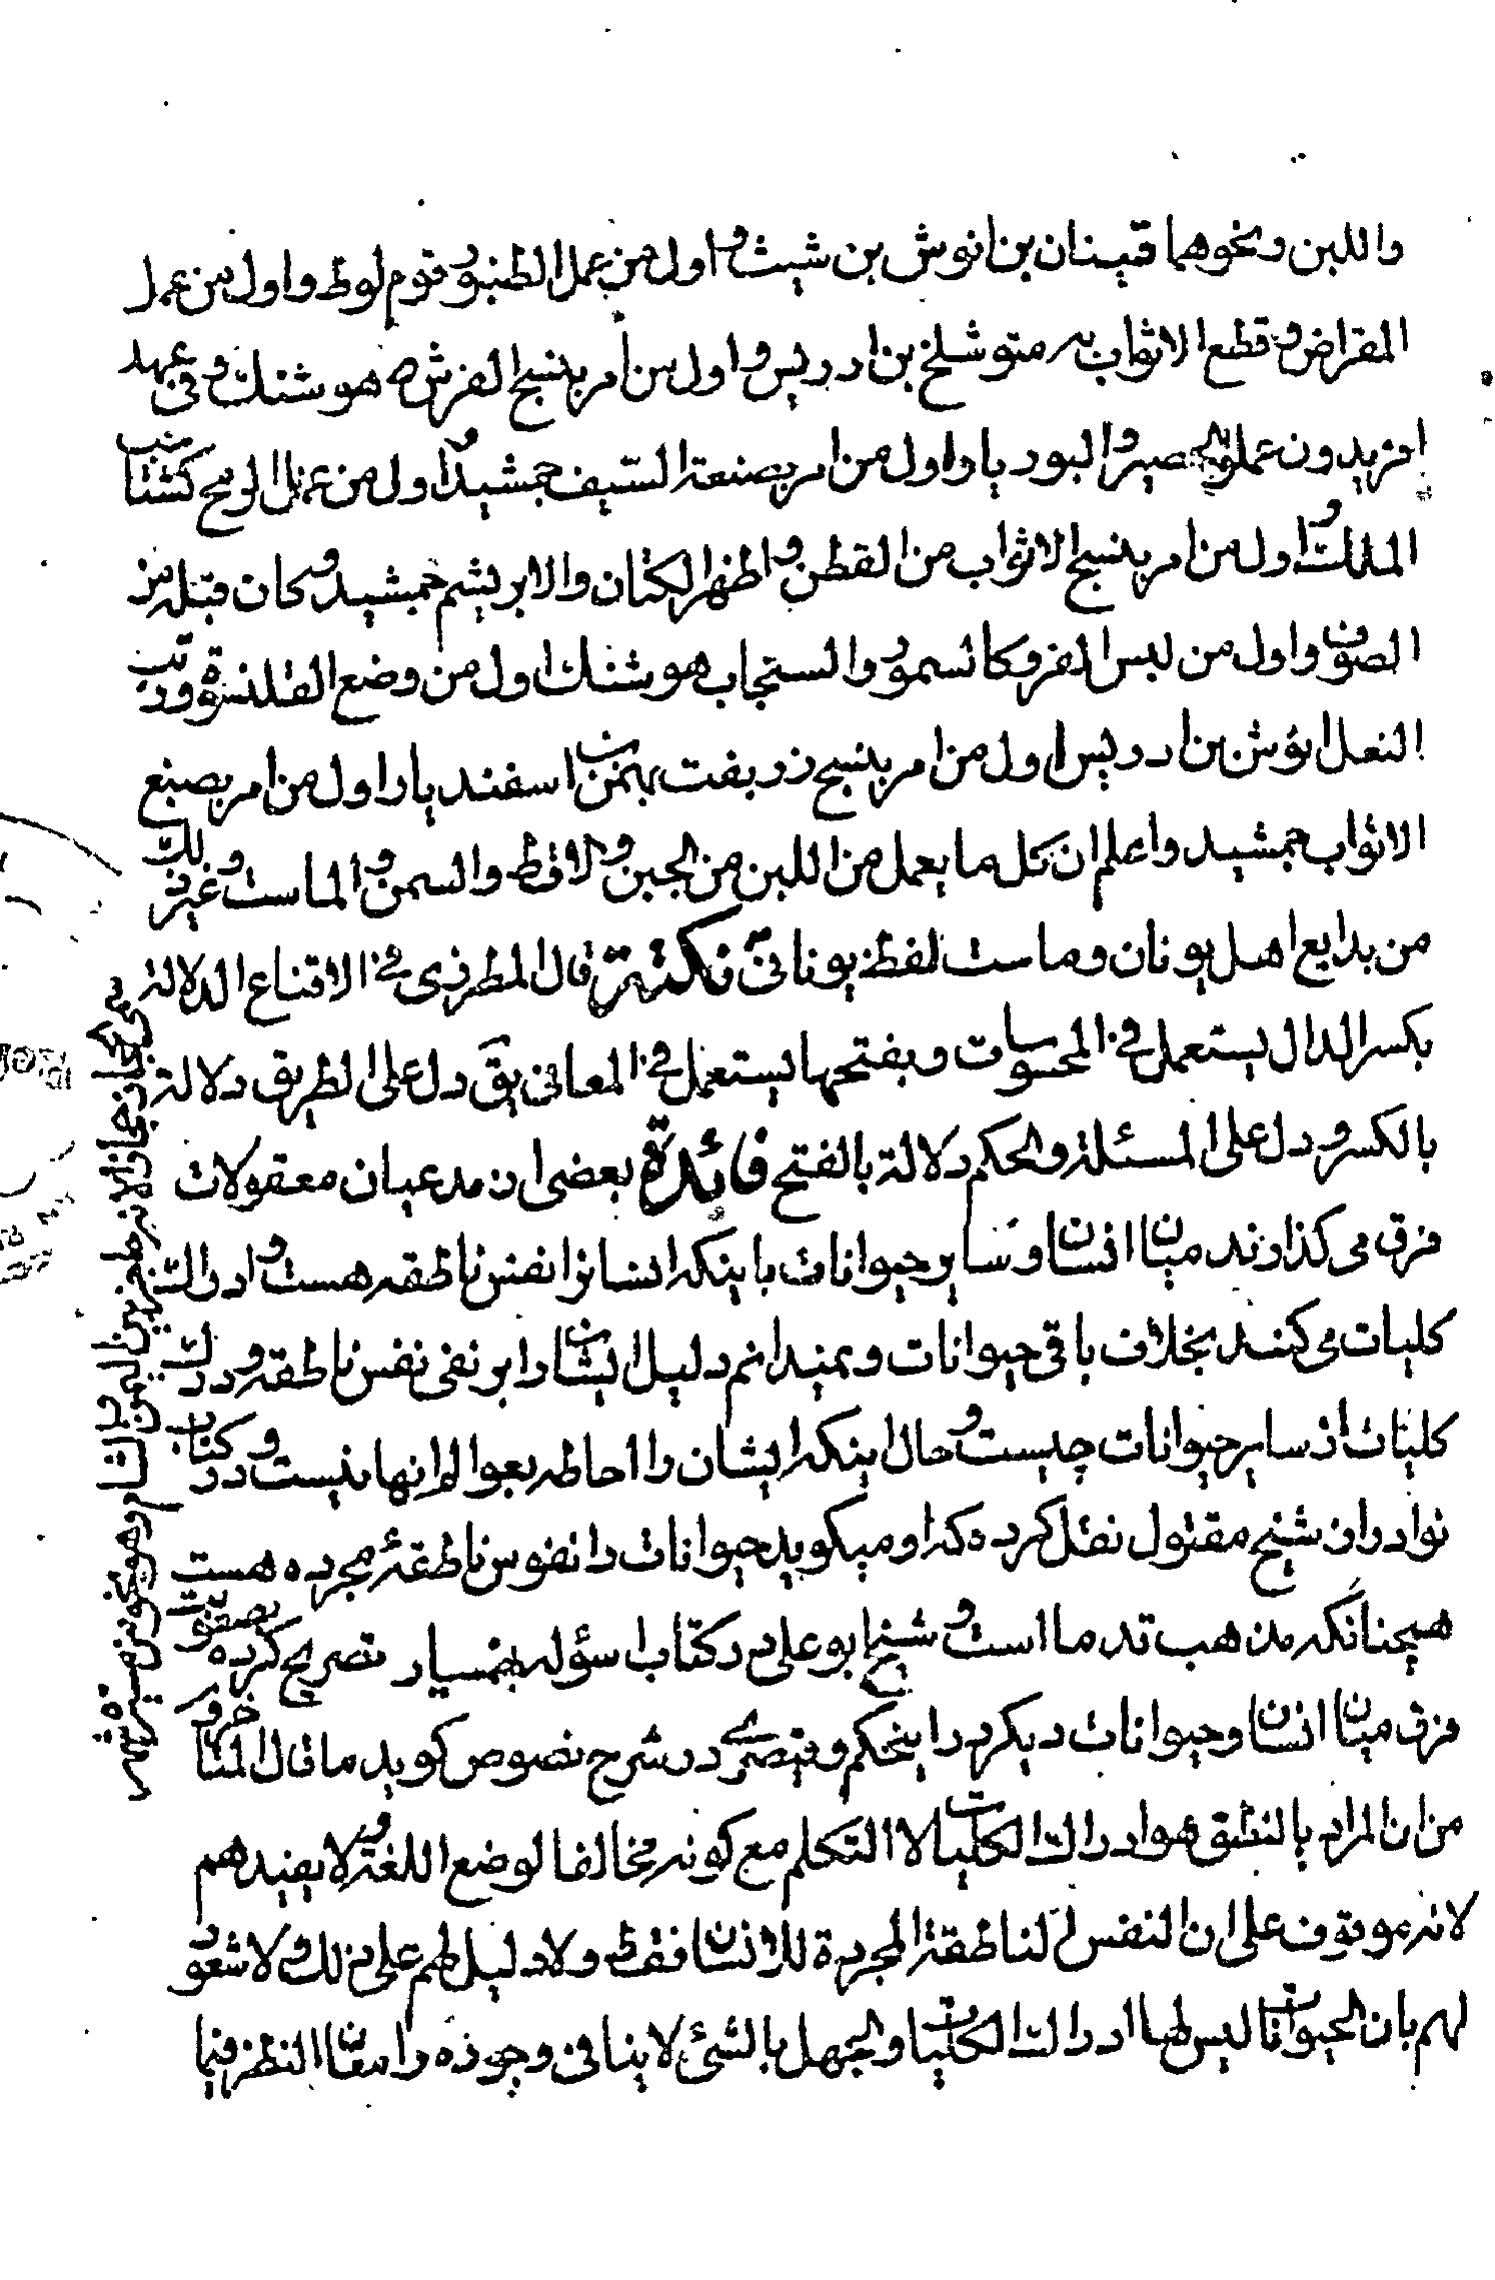 واللبن ونحوهما قينان بن انوش بن شيث و اول من عمل الطنبور قوم لوط و اول من عمل
المقراض و قطع الاثواب به متوشلخ بن ادريس و اول من امر بنسج الفرش هوشنك و في عهد
افريدون عمل الحصير و البوريا و اول من امر بصنعة السيف جمشيد و اول من عمل الرمح كشتاسب
الملك و اول من امر بنسج الاثواب من القطن و اظهر الكتان والابريشم جمشيد و كان قبله من
الصوف و اول من لبس الفرو كالسمور والسنجاب هوشنك اول من وضع القلنسوة و رتب
النعل انوش بن ادريس اول من امر بنسج زربفت بهمن بن اسفنديار اول من امر بصبغ
الاثواب جمشيد واعلم ان كل ما يعمل من اللبن من الجبن و الاقط والسمن و الماست و غير ذلك
من بدايع اهل يونان وماست لفظ يونانى نكتة قال المطرزى فى الاقناع الدلالة
بكسر الدال يستعمل فى المحسوسات وبفتحها يستعمل فى المعانى يق دل على الطريق دلالة
بالكسر و دل على المسئلة والحكم دلالة بالفتح فائدة بعضى از مدعيان معقولات
فرق مى كذارند ميان انسان وساير حيوانات باينكه انسانرا نفس ناطقه هست و ادراك
كليات مى كنند بخلاف باقى حيوانات و نميدانم دليل ايشان را بر نفى نفس ناطقه و درك
كليات از ساير حيوانات چيست و حال اينكه ايشان را احاطه بعوالم انها نيست و در كتاب
نوادر از شيخ مقتول نقل كرده كه او ميكويد حيوانات را نفوس ناطقه مجرده هست
هيچنانكه مذهب قدما است و شيخ ابو على در كتاب اسؤله بهمنيار تصريح كرده بصعوبت
فرق ميان انسان وحيوانات ديكر در اينحكم وقيصرى در شرح نصوص كويد ما قال المتاخرون
من ان المراد بالنطق هو ادراك الكليات لا التكلم مع كونه مخالفا لوضع اللغة لا يفيدهم
لانه موقوف على ان النفس الناطقة المجردة للانسان فقط ولا دليل لهم على ذلك و لا شعور
لهم بان الحيوانات ليس لها ادراك الكليات والجهل بالشئ لا ينافى وجوده و امعان النظر فيما